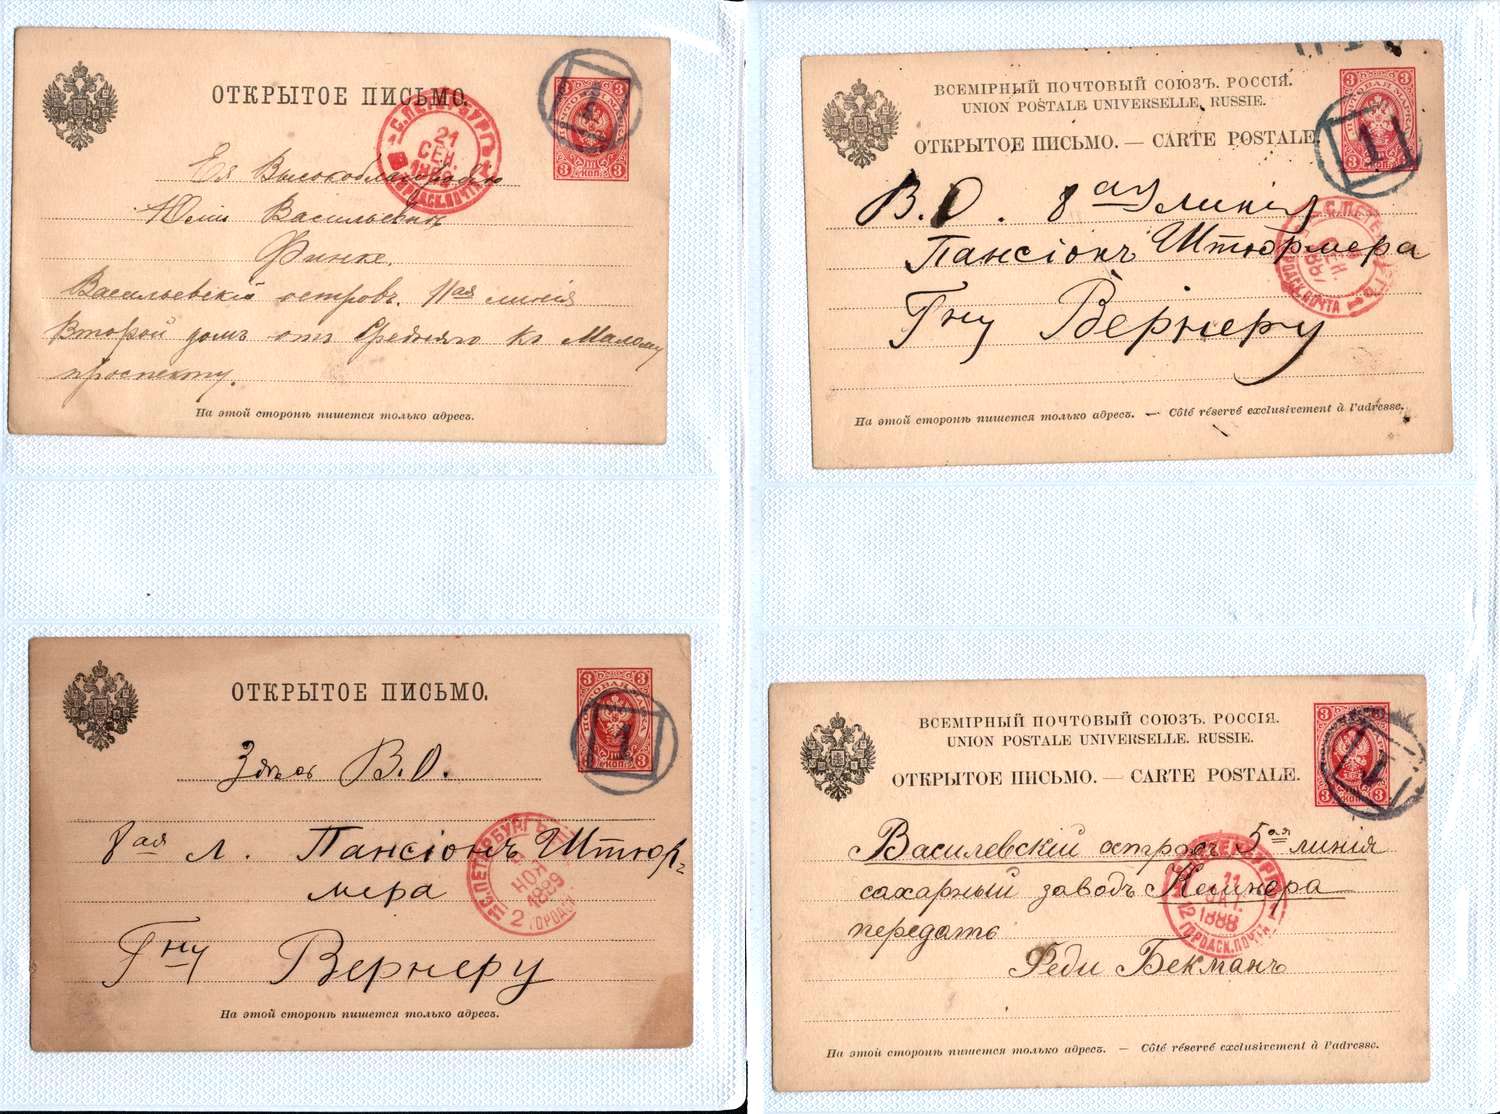 ОТКРЫТОЕ ПИСЬМО.
С.ПЕТЕРБУРГЪ
21
СЕН.
ГОРОДСК.ПОЧТА
3 3
3 КОП. 3
Ея Высокоблагородію
Юліи Васильевнѣ
Финке.
Васильевскій островъ. 11ая линія
Второй домъ отъ Средняго къ Малому
проспекту.
На этой сторонѣ пишется только адресъ.
ВСЕМІРНЫЙ ПОЧТОВЫЙ СОЮЗЪ. РОССІЯ.
UNION POSTALE UNIVERSELLE. RUSSIE.
ОТКРЫТОЕ ПИСЬМО. — CARTE POSTALE.
3 ПОЧТОВАЯ МАРКА 3
1
В.О. 8ая линія
Пансіонъ Штюрмера
Гну Вернеру
СЕН.
ГОРОДСК.ПОЧТА
На этой сторонѣ пишется только адресъ. — Côté réservé exclusivement à l'adresse.
ОТКРЫТОЕ ПИСЬМО.
3 3
1
3 КОП. 3
Здѣсь В.О.
8ая Л. Пансіонъ Штюр-
мера
Гну Вернеру
С.ПЕТЕРБУРГЪ
НОЯ
1889
2 ГОРОДСК.
На этой сторонѣ пишется только адресъ.
ВСЕМІРНЫЙ ПОЧТОВЫЙ СОЮЗЪ. РОССІЯ.
UNION POSTALE UNIVERSELLE. RUSSIE.
ОТКРЫТОЕ ПИСЬМО. — CARTE POSTALE.
3 3
1
3 КОП. 3
Василевскій островъ 5ая линія
сахарный заводъ Кенигера
передать
Феди Бекманъ
С.ПЕТЕРБУРГЪ
11
ОКТ.
1888
ГОРОДСК.ПОЧТА
На этой сторонѣ пишется только адресъ. — Côté réservé exclusivement à l'adresse.